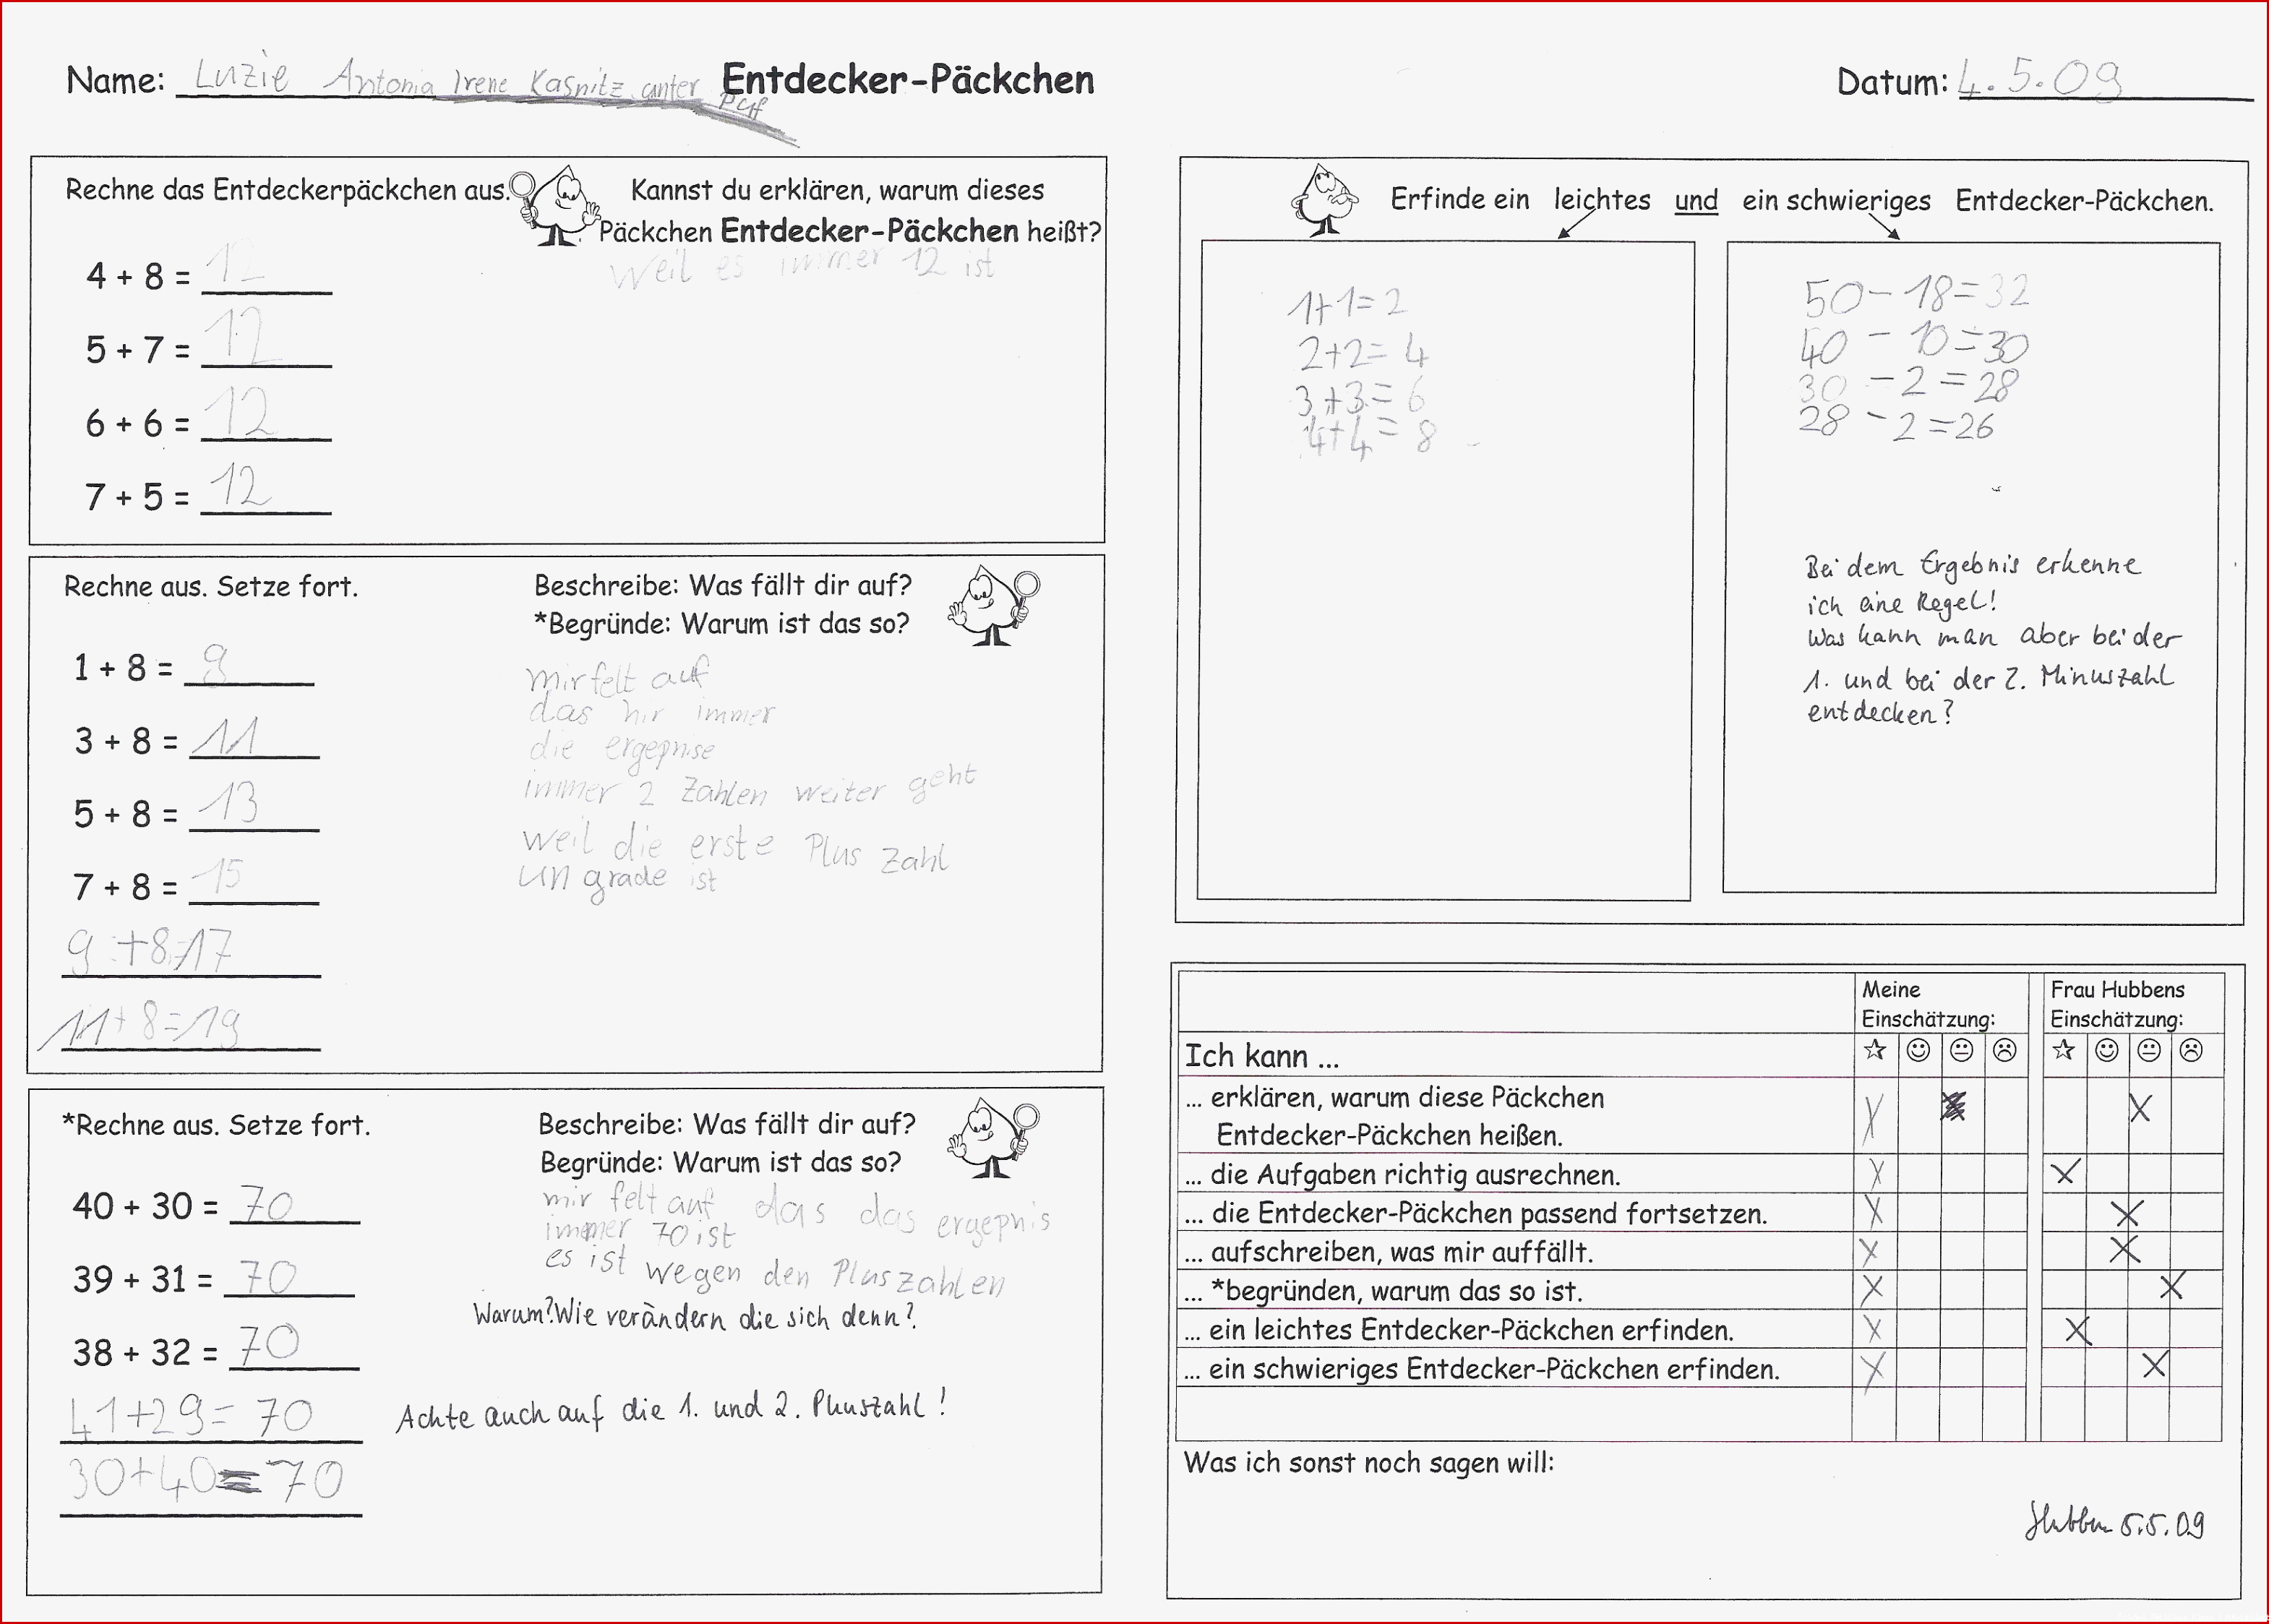 Name: Luzie Antonia Irene Kasnitz unter Entdecker-Päckchen Datum: 4.5.09
Rechne das Entdeckerpäckchen aus.
4 + 8 = 12
5 + 7 = 12
6 + 6 = 12
7 + 5 = 12
Kannst du erklären, warum dieses
Päckchen Entdecker-Päckchen heißt?
Weil es immer 12 ist
Rechne aus. Setze fort.
1 + 8 = 9
3 + 8 = 11
5 + 8 = 13
7 + 8 = 15
9 + 8 = 17
11 + 8 = 19
Beschreibe: Was fällt dir auf?
*Begründe: Warum ist das so?
mir felt auf
das hir immer
die ergepnise
immer 2 Zahlen weiter geht
weil die erste Plus Zahl
un grade ist
*Rechne aus. Setze fort.
40 + 30 = 70
39 + 31 = 70
38 + 32 = 70
41+29= 70
30+40=70
Beschreibe: Was fällt dir auf?
Begründe: Warum ist das so?
mir felt auf das das ergepnis
immer 70 ist
es ist wegen den Pluszahlen
Warum? Wie verändern die sich denn?
Achte auch auf die 1. und 2. Pluszahl!
Erfinde ein leichtes und ein schwieriges Entdecker-Päckchen.
1+1=2
2+2=4
3+3=6
4+4=8
50-18=32
40-10=30
30-2=28
28-2=26
Bei dem Ergebnis erkenne
ich eine Regel!
Was kann man aber bei der
1. und bei der 2. Minuszahl
entdecken?
Meine
Einschätzung:
Frau Hubbens
Einschätzung:
Ich kann ...
... erklären, warum diese Päckchen
Entdecker-Päckchen heißen.
... die Aufgaben richtig ausrechnen.
... die Entdecker-Päckchen passend fortsetzen.
... aufschreiben, was mir auffällt.
... *begründen, warum das so ist.
... ein leichtes Entdecker-Päckchen erfinden.
... ein schwieriges Entdecker-Päckchen erfinden.
Was ich sonst noch sagen will:
5.5.09